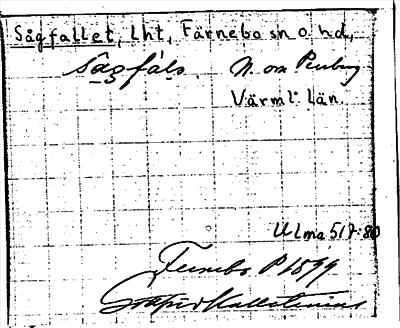 Sågfallet, Lht, Färnebo sn o. hd,
sågfàls. N. om Persberg
Värml: Län.
Ulma 517:80
Fernebo P 1899